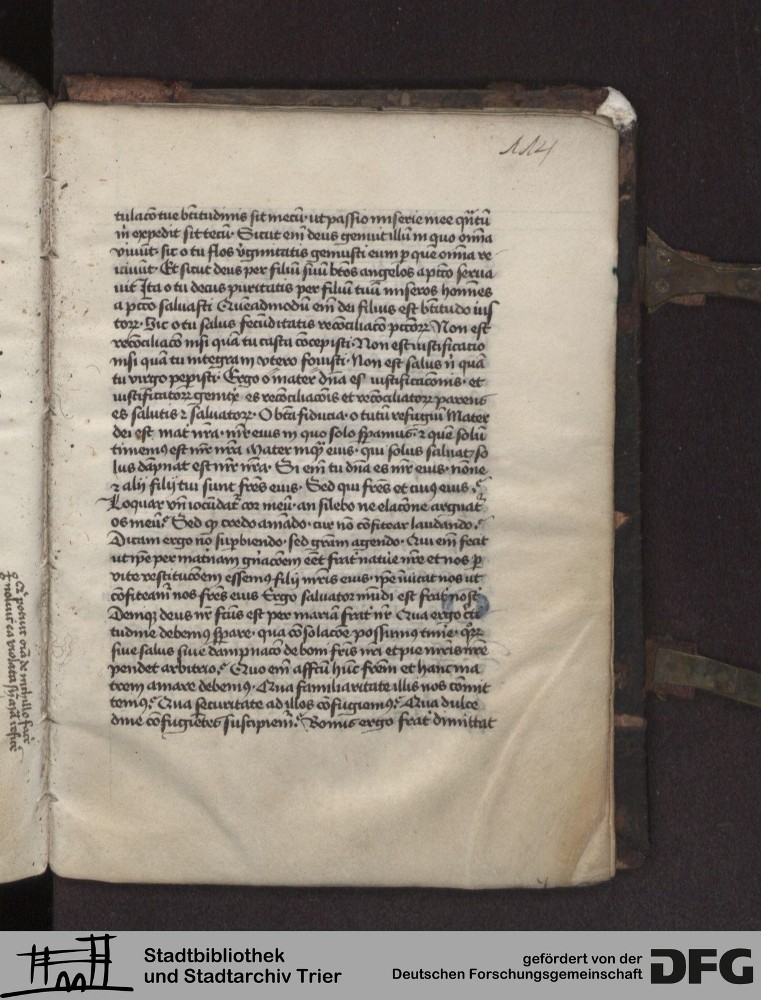 114
tulacōe tue btītudinis sit mecū· ut passio miserie mee qn̄tū
m̄ expedit sit tecū· Sicut eī deus genuit illū in quo om̄ia
viuūt· sic o tu flos v̓ginitatis genuisti eum p que om̄ia re
uiuūt· Et sicut deus per filiū suū btōs angelos a pctō serua
uit Ita o tu decus puritatis per filiū tuū miseros hoīnes
a pctō saluasti Queadmodū eī dei filius est btītudo ius
torꝝ· Sic o tu salus fecūditatis recōciliacō pctōrꝝ Non est
recōciliacō nisi quā tu casta cōcepisti· Non est iustificatio
nisi quā tu integra in vtero fouisti· Non est salus n̄ quā
tu virgo pepisti· Ergo o mater dn̄a es iustificacōnis· et
iustificatorꝝ genitˣ es recōciliacōnis et recōciliatorꝝ parens
es salutis ⁊ saluatorꝝ· O btā fiducia· o tutū refugiū Mater
dei est mat̓ nr̄a· mr̄ eius in quo solo spamus· ⁊ que solū
timemꝰ est mr̄ nr̄a Mater inqͣ eius· qui solus saluat· so
lus dāpnat est mr̄ nr̄a· Si eī tu dn̄a es mr̄ eius· nōne
⁊ alij filij tui sunt frēs eius· Sed qui frēs et cuiꝰ eius·
Loquar vn̄ iocūdat̓ cor meū· an silebo ne elacōne arguat̓
os meū· Sed qͩ credo amādo· cur nō cōfitear laudando·
Dicam ergo nō supbiendo· sed grām agendo· Qui eī fecit
ut ip̄e per mat̓nam gn̄acōem eēt frat̓ nature nr̄e et nos p
vite restitucōem essemꝰ filij mr̄is eius· ip̄e īuitat nos ut
cōfiteam̄ nos frēs eius Ergo saluator mūdi est frat̓ nost̓
Demqꝫ deus nr̄ fc̄us est per mariā frat̓ nr̄· Qua ergo c̓ti
tudine debemꝰ spare· qua cōsolacōe possumꝰ tim̄e· qr̄
siue salus siue dampnacō de boni fr̄is nr̄i et pie mr̄is nr̄e
pendet arbitrio· Quo eī affc̄u hūc fr̄em et hanc ma
trem amare debemꝰ· Qua familiaritate illis nos cōmit
temꝰ· Qua securitate ad illos cōfugiemꝰ· Qua dulce
dine cōfugiētes suscipiem̄· Bonus ergo frat̓ dimittat
potuit oīa de nichillo fac̄e
noluit ea violata sn̄ maria refic̄e
Stadtbibliothek
und Stadtarchiv Trier
gefördert von der
Deutschen Forschungsgemeinschaft
DFG